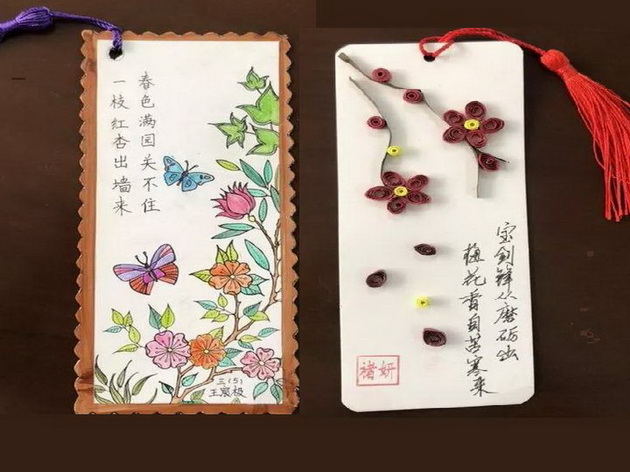 春色满园关不住
一枝红杏出墙来
三(5)
王宸极
宝剑锋从磨砺出
梅花香自苦寒来
褚妍